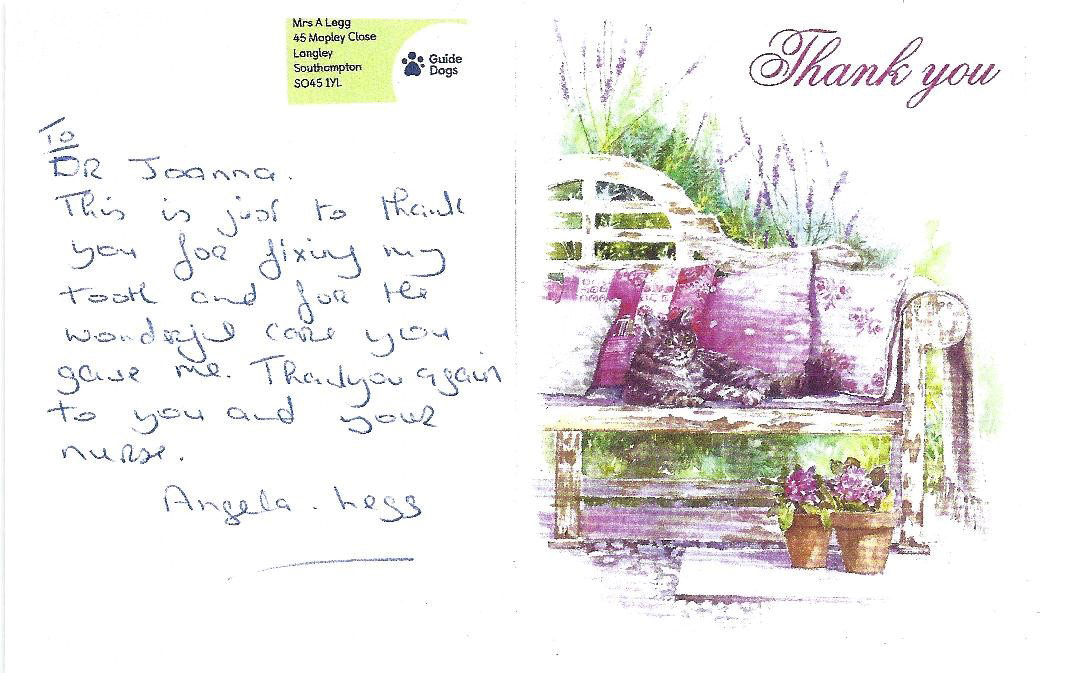 Mrs A Legg
45 Mopley Close
Langley
Southampton
SO45 1YL
Guide
Dogs
Thank you
To
DR Joanna.
This is just to thank
you for fixing my
tooth and for the
wonderful care you
gave me. Thankyou again
to you and your
nurse.
Angela. Legg